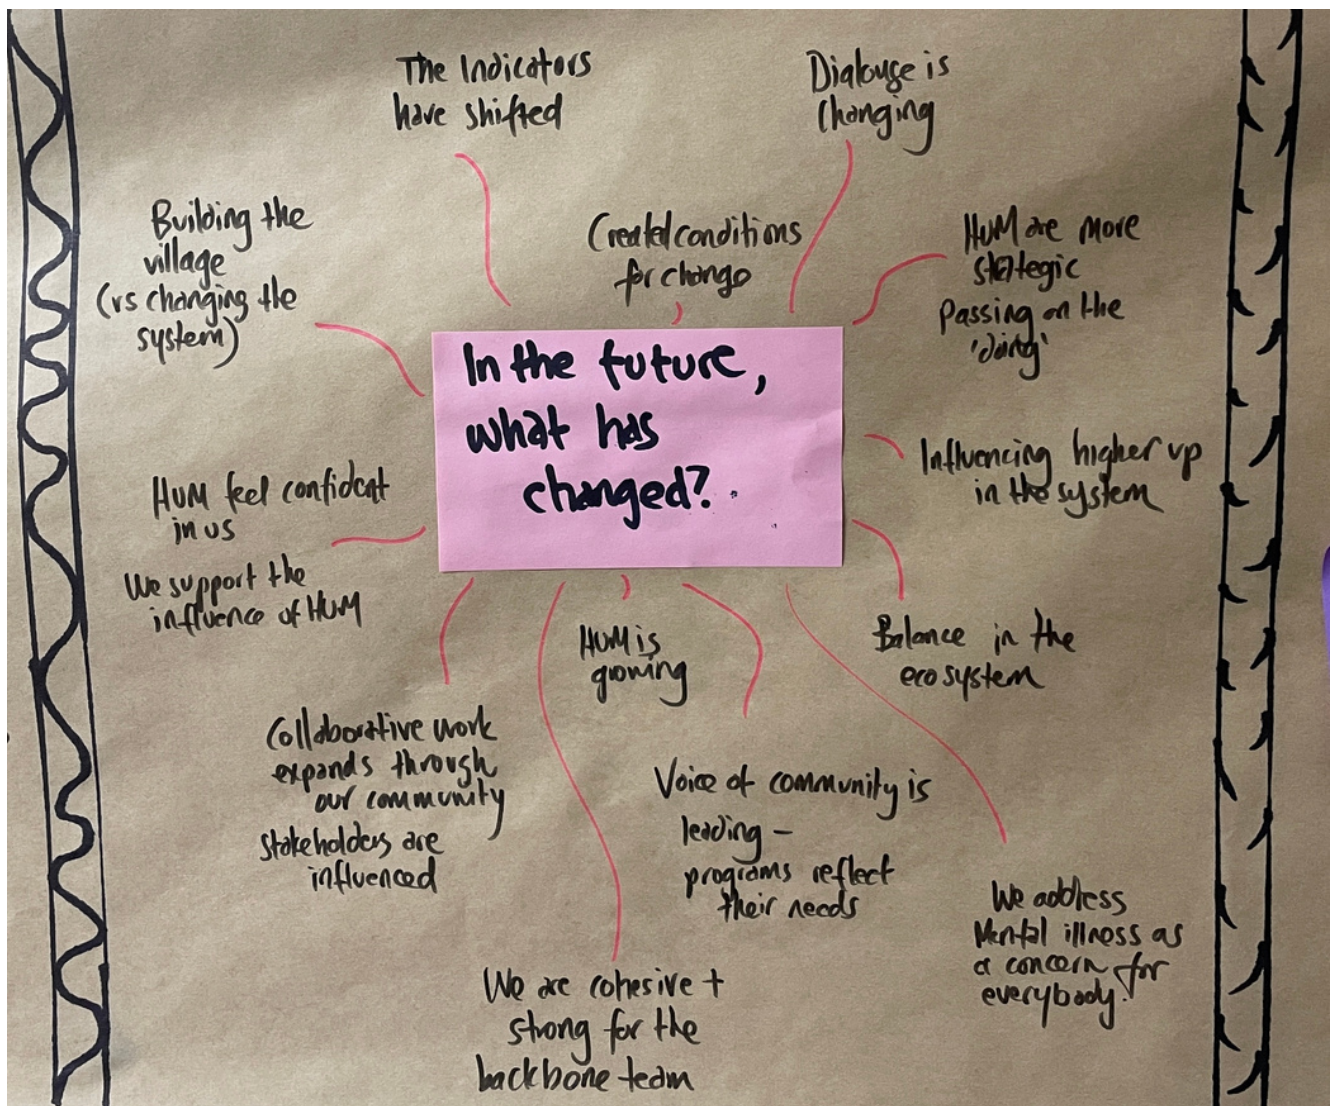 The Indicators
have shifted
Dialouge is
changing
Building the
village
(vs changing the
system)
Created conditions
for change
HUM are more
strategic
Passing on the
'doing'
In the future,
what has
changed?
Influencing higher up
in the system
HUM feel confident
in us
We support the
influence of HUM
HUM is
growing
Balance in the
ecosystem
Collaborative work
expands through
our community
Stakeholders are
influenced
Voice of community is
leading –
programs reflect
their needs
We address
Mental illness as
a concern for
everybody.
We are cohesive +
strong for the
backbone team